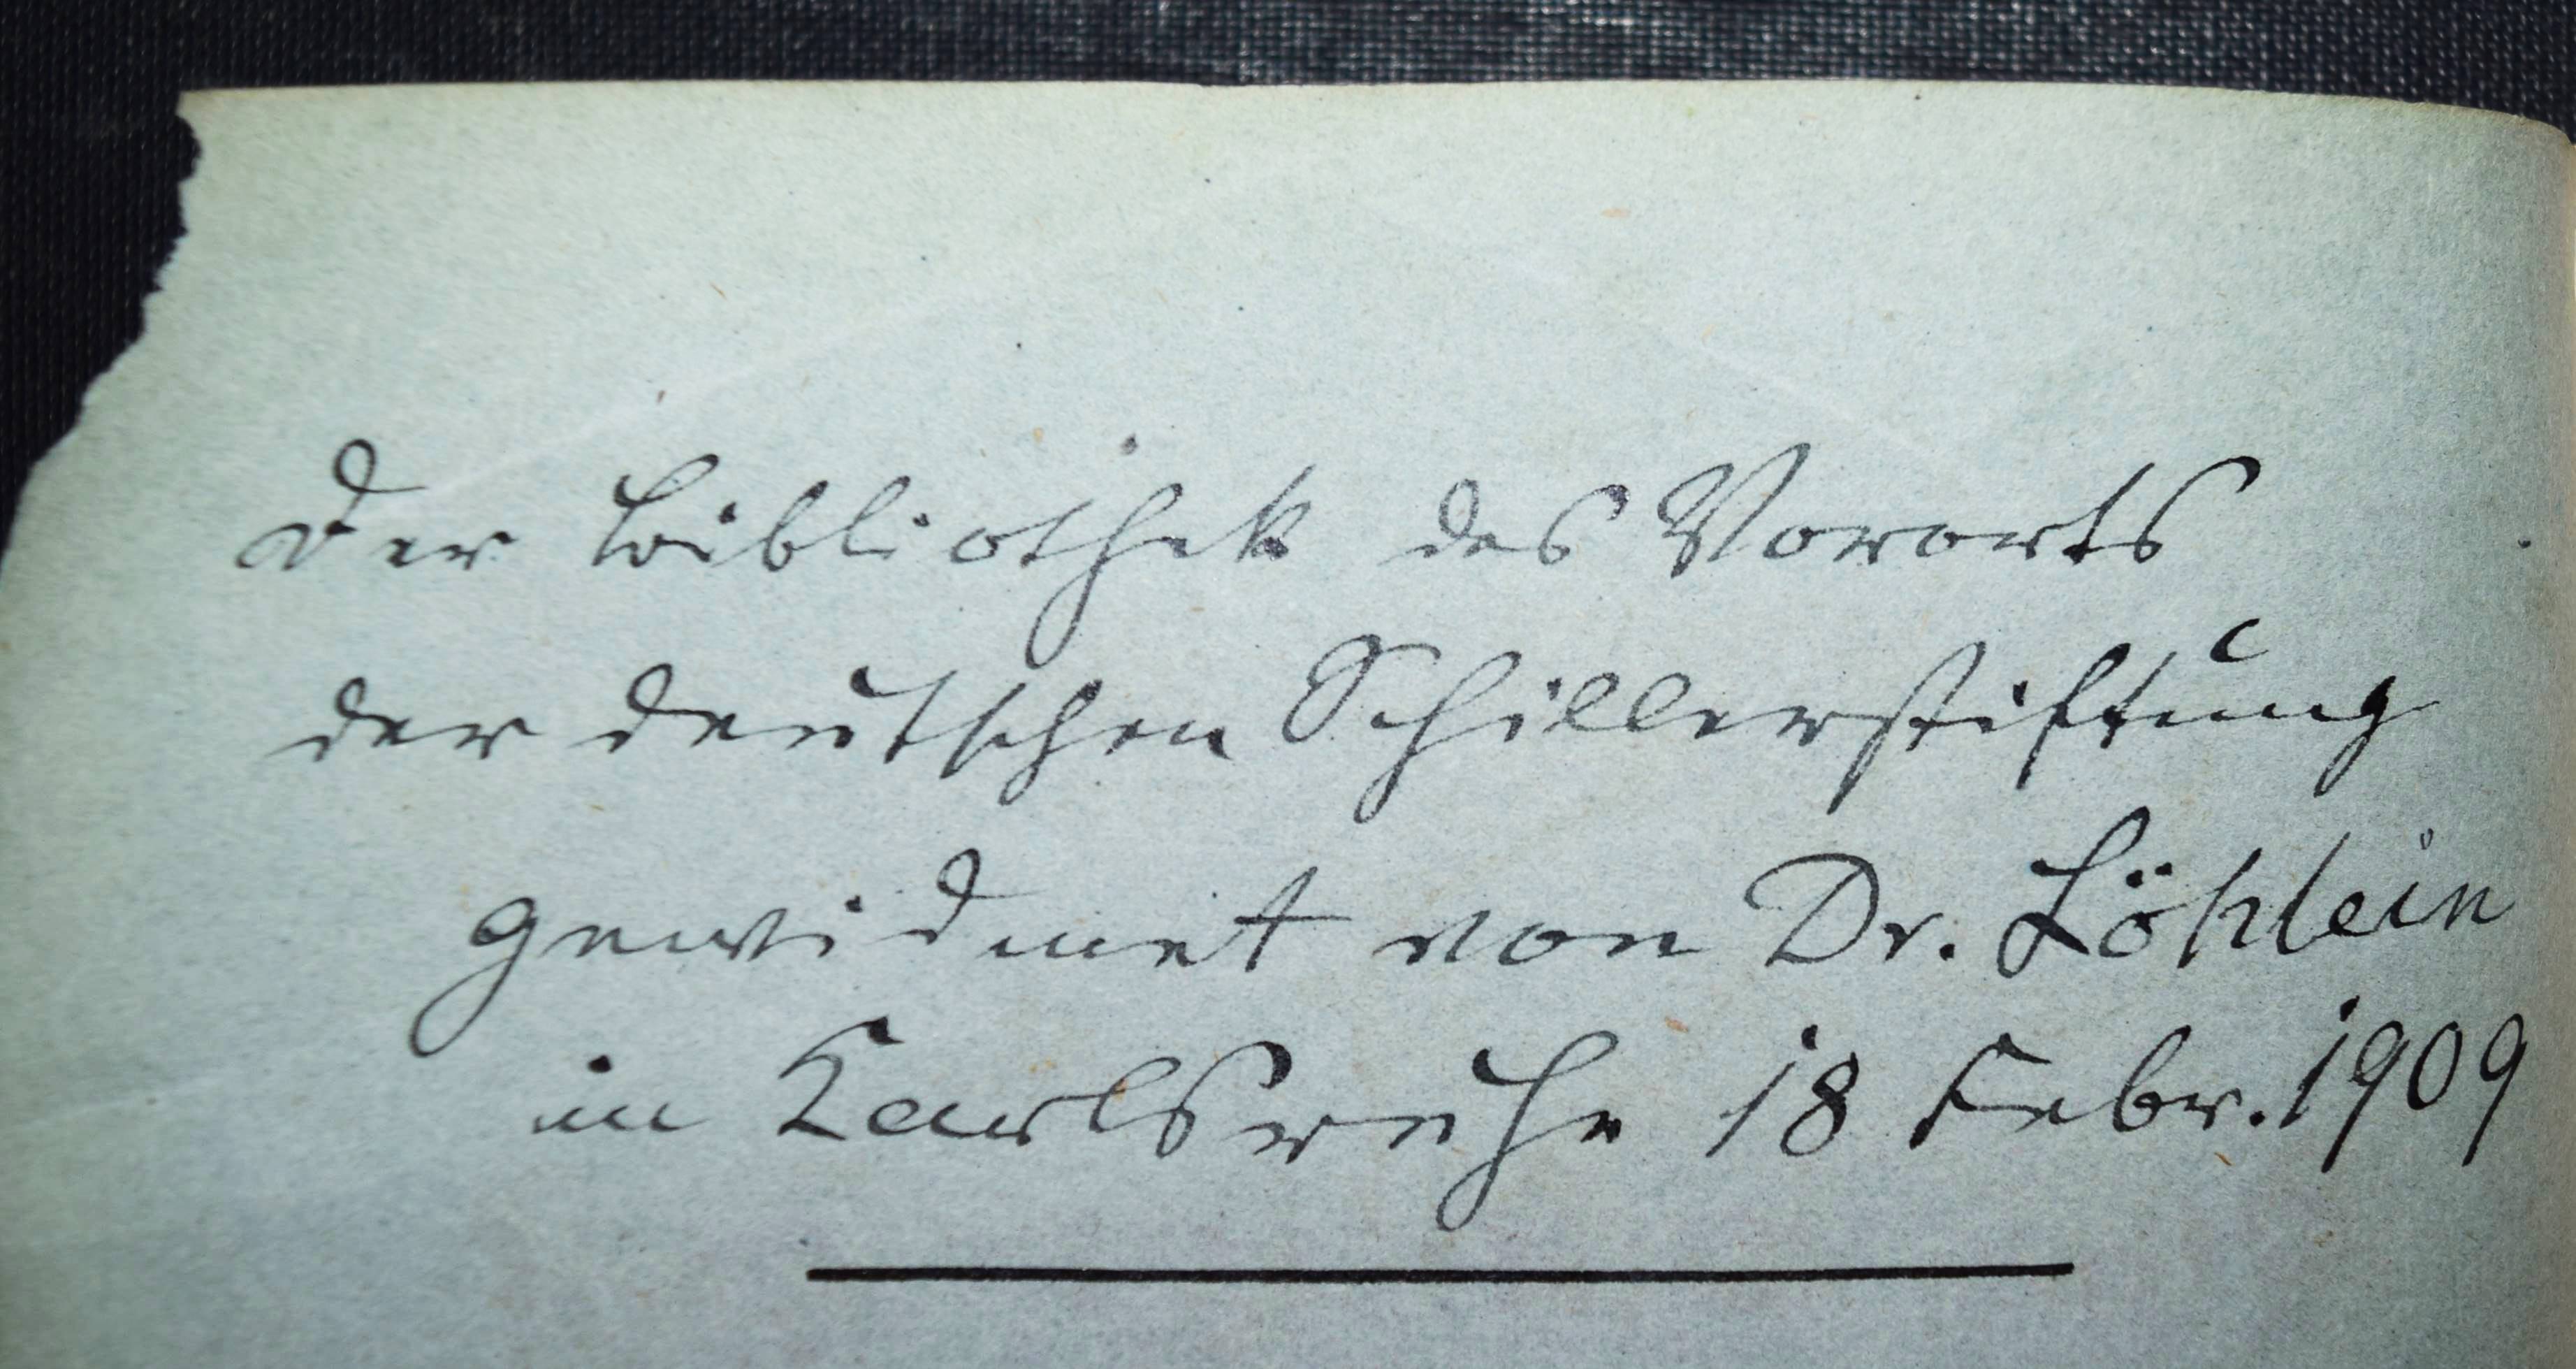 Der Bibliothek des Vororts
der deutschen Schillerstiftung
gewidmet von Dr. Löhlein
in Karlsruhe 18 Febr. 1909